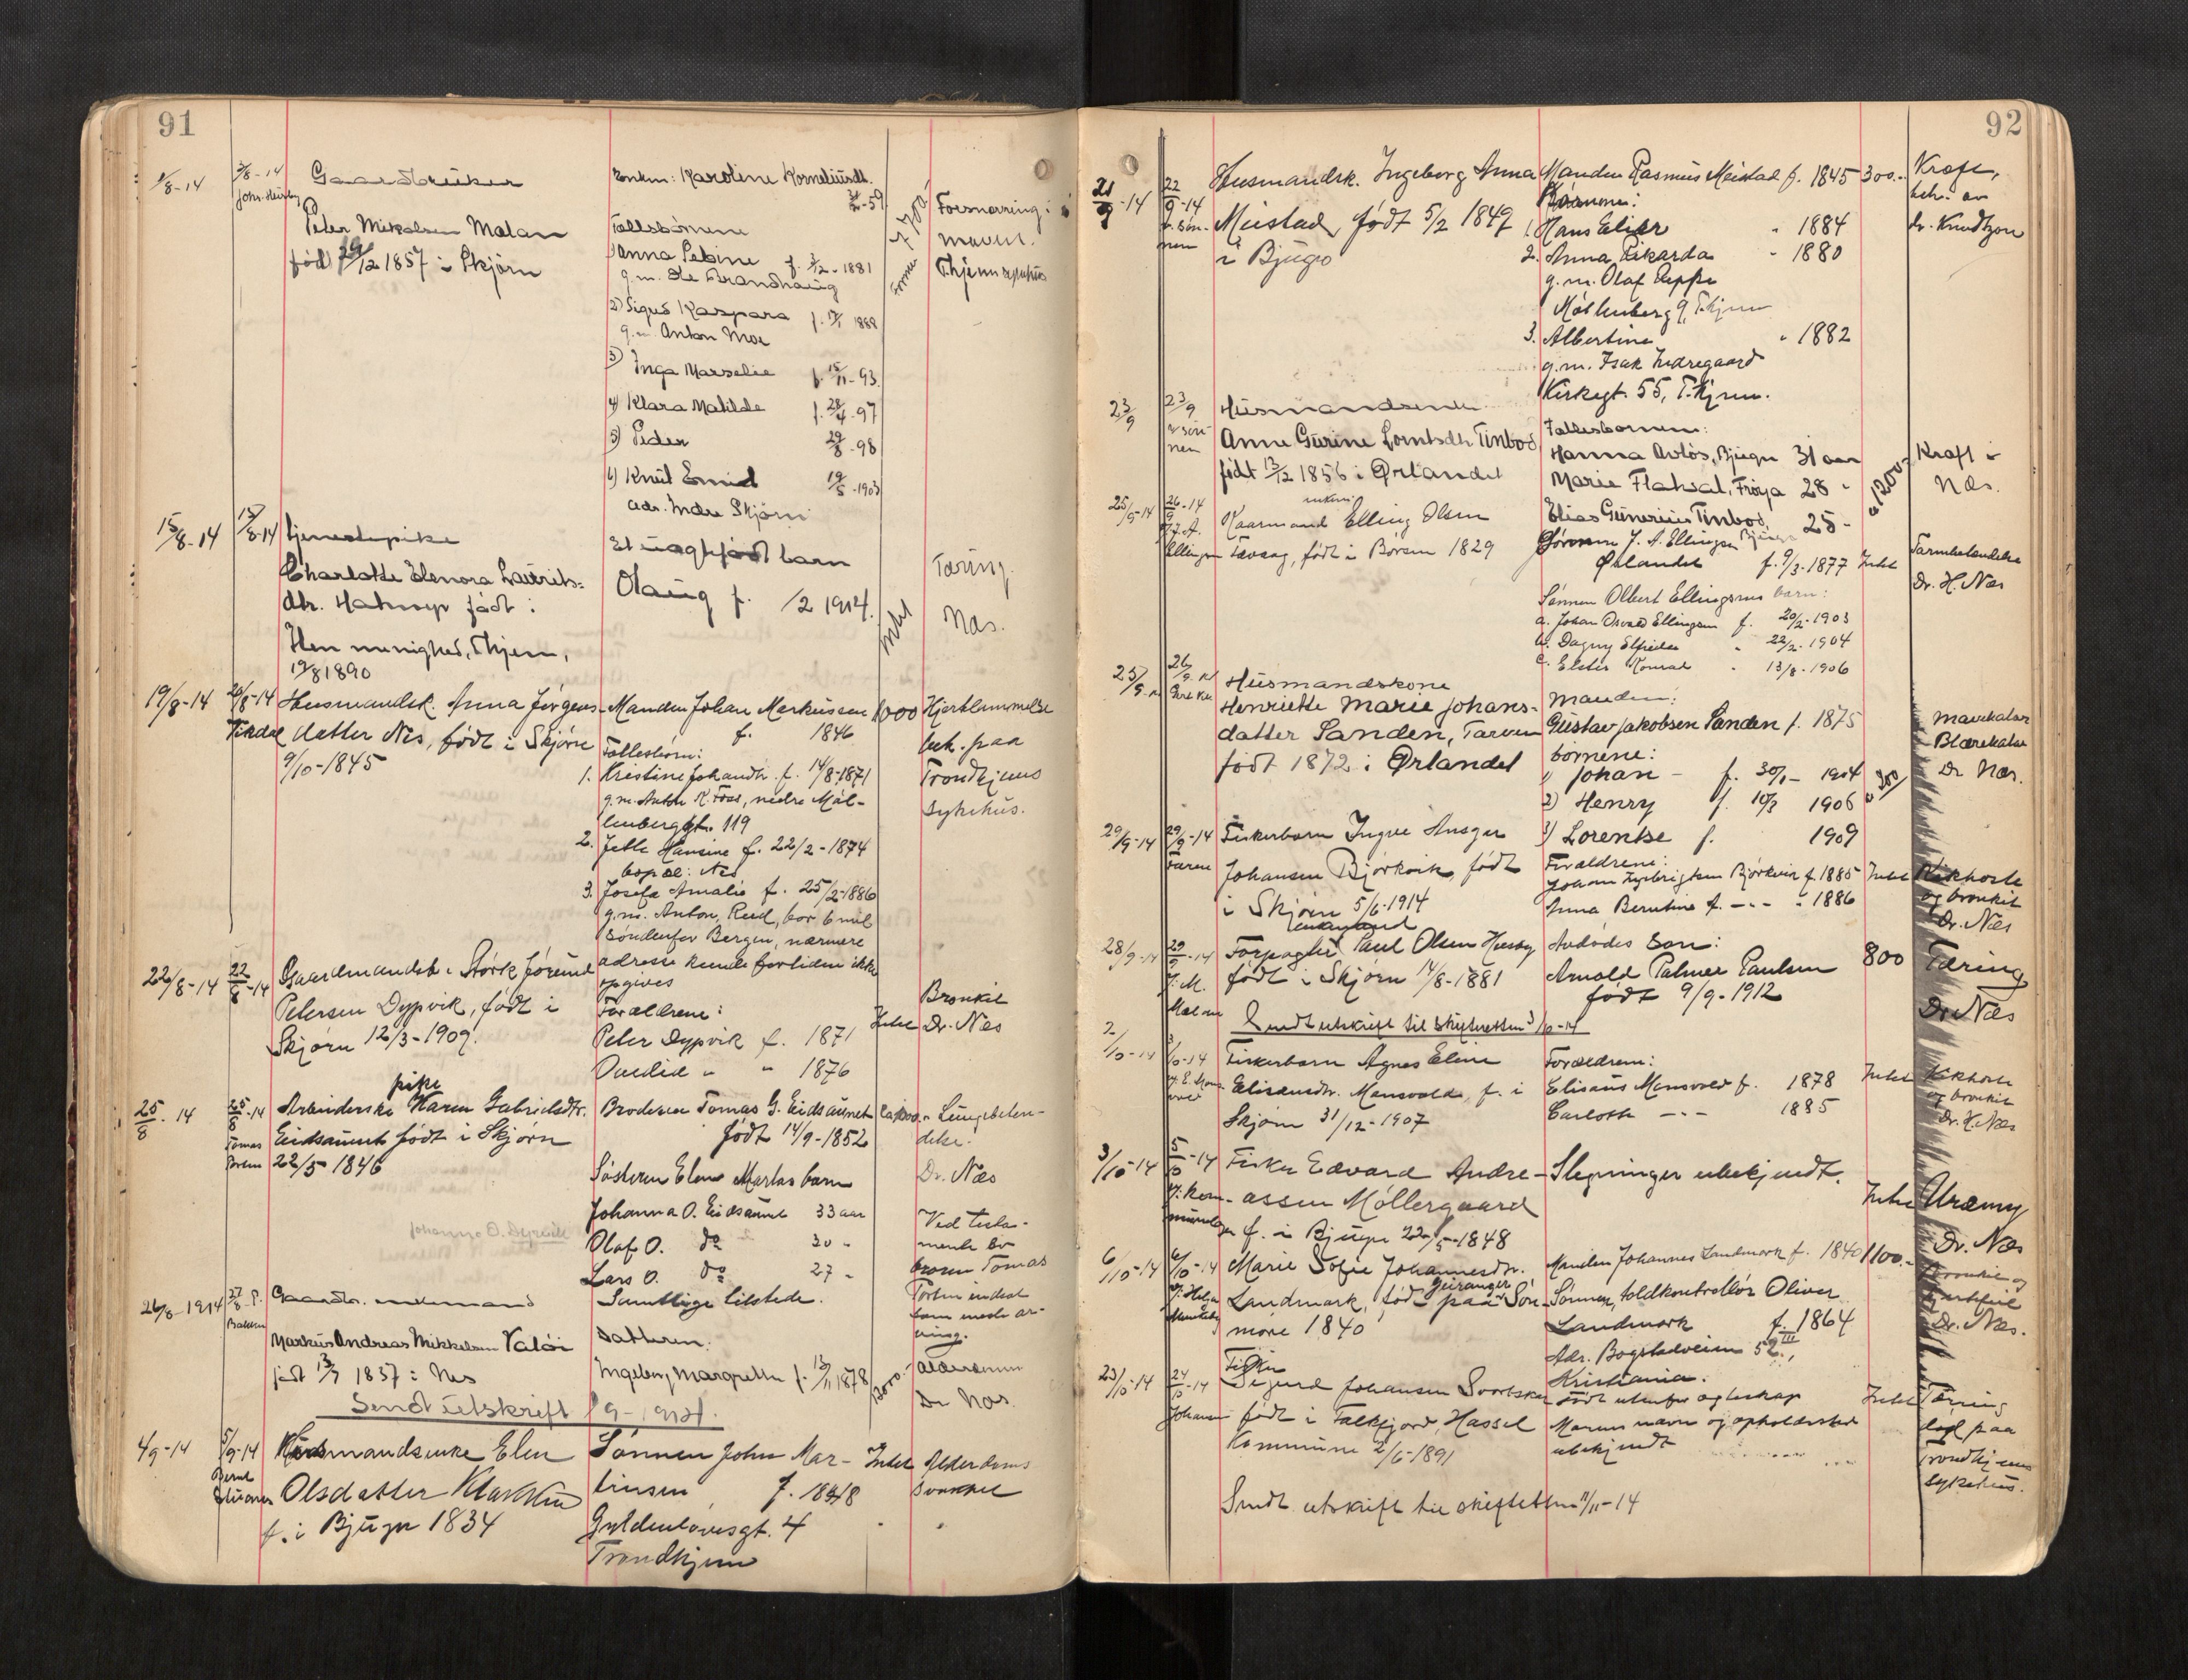 91
1/8-14
3/8-14
Gaardbruker
Peter Mikalsen Malan
født 29/12 1857 i Skjørn
Enken: Karoline Korneliusdt.
Fællesbörnene
1) Anna Sebine f. 3/12-1881
g.m. Ole Brandhaug
2) Sigud Kaspara f. 1888
g.m. Anton Moe
3) Inga Marselie f. 15/11-93.
4) Klara Matilde f. 28/4-97
5) Peder 29/8-98
6) Knut Emil 19/5-1903
adr. Indre Skjørn
Forsnævring i
maven.
Thjems sykehus
15/8-14
15/8-14
tjenestepike
Charlotte Elenora Laurits-
dtr. født i
menighed, Thjem,
19/8 1890
Et uægtefødt barn
Olaug f. /2 1914.
Intet
Tæring.
Næs.
19/8-14
20/8-14
Husmandsk. Anna Jørgens-
datter Nes, født i Skjørn
9/10-1845
Manden Johan Markussen
f. 1846
Fællesbörn:
1. Kristine Johandtr. f. 14/8-1871
g.m. Anton K. Foss, nedre Møl-
lenberggt. 119
2. Jette Hansine f. 22/2-1874
bopæl: Nes
3. Josefa Amalie f. 25/2-1886
g.m. Anton Reed, bor 6 mil
søndenfor Bergen, nærmere
adresse kunde fortiden ikke
opgives
1000
Hjertelammelse
beh. paa
Trondhjems
sykehus.
22/8-14
22/8-14
Gaardmandsb. Størk Jørund
Petersen Dypvik, født i
Skjørn 12/3-1909.
Forældrene:
Peter Dypvik f. 1871
" " 1876
Intet
Bronkit
Dr. Næs
25/8. 14
25/8-14
Tomas
pike
Arbeiderske Karen Gabrielsdtr.
Eidsaunet født i Skjørn
22/5 1846
Broderen Tomas G. Eidsaunet
født 14/9-1852
Søsteren Elen Martas barn
Johanna O. Eidsaune 33 aar
Olaf O. do 30 "
Lars O. do 27 "
Samtlige tilstede.
Lungebeten-
delse.
Dr. Næs
Ved testa-
mente
broren Tomas
indsat
som
arving.
26/8-1914
27/8
Markus Andreas Mikkelsen Valøi
født 13/7 1837 i Nes
Datteren:
Ingeborg Margrethe f. 1878
3000
Alderdom
Dr Næs
Sendt utskrift /9-1914.
4/9-14
5/9-14
Kaarmandsenke Elen
Olsdatter
f. i Bjugn 1834
Sønnen John Mar-
tinsen f. 1878
Gyldenløvesgt. 4
Trondhjem
Intet
Alderdoms
svakhet
92
21/9-14
22/9-14
Husmandsk. Ingeborg Anna
Meistad, født 5/2 1849
i Bjugn
Manden Rasmus Meistad f. 1845
Børnene:
1. Hans Elier " 1884
2. Anna Rikarda " 1880
g.m. Olaf
Møllenberg 9, T.hjem
3. Albertine " 1882
g.m. Isak Indregaard
Kirkegt. 55, T.hjem.
300.-
Kræft,
beh. av
dr. Knudtzon
23/9
23/9
Husmandsenke
Anne Gurine Lorntsdtr Tinbod
født 13/12 1856 i Ørlandet
Fællesbørnene:
Hanna Avløs, Bjugn 31 aar
Marie Flatval, Frøya 28 "
Elias Gunerius Tinbod, 25 "
1200
Kræft i
Næs.
25/9-14
26/9-14
Kaarmand Elling Olsen
født i Børsen 1829
Sønnen J. A. Ellingsen
Ørlandet f. 9/3-1877
Sønnen Olbert Ellingsens barn:
a. Johan Osvald Ellingsen f. 20/2-1903
b. Dagny Elfrida " 22/2-1904
c. Konrad " 13/8-1906
Intet
Tarmbetændelse
Dr. H. Næs
25/9
26/9
Husmandskone
Henriette Marie Johans-
datter Sanden, Tarven
født 1872 i Ørlandet
Manden:
Gustav Jakobsen Sanden f. 1875
børnene:
1) Johan - f. 30/1- 1904
2) Henry f. 10/3 1906
3) Lorentse f. 1909
300
Mavekatar
Blærekatar
Dr Næs.
29/9-14
29/9-14
Faren
Fiskerbarn Ingve Ansgar
Johansen Bjørkvik, født
i Skjørn 5/6-1914
Forældrene:
Johan Bjørkvik f. 1885
Anna Berntine f. -"- " 1886
Intet
Kikhoste
og bronkit
Dr. Næs
28/9-14
29/9-14
Forpagter Paul Olsen Husby
født i Skjørn 14/8-1881
Avdødes søn:
Arnold Palmer Paulsen
født 9/9-1912
800
Tæring
Dr. Næs
Sendt utskrift til skifteretten 3/10-14
2/10-14
3/10-14
Fiskerbarn Agnes Eline
Eliseusdtr. Mansvolde, f. i
Skjørn 31/12-1907
Forældrene:
Eliseus Mansvold f. 1878
-"- 1885
Intet
Kikhoste
og bronkit
Dr. H. Næs
3/10-14
5/10-14
Fisker Edvard Andre-
assen Møllergaard
f. i Bjugn 22/5-1848
Slegtninger ubekjendt.
Intet
Uræmy
Dr. Næs
6/10-14
6/10-14
Marie Sofie Johannesdtr.
Landmark, født paa Geiranger Søn-
møre 1840
Manden Johannes Landmark f. 1840
Sønnen, toldkontrollør Oliver
Landmark f. 1864
Adr. Bogstadveien 52 III,
Kristiania.
1100.-
Bronkit og
hjertefeil
Dr. Næs.
23/10-14
24/10-14
Fisker
Sigurd Johansen
født i Falkfjord, Hassel
Kommune 2/6-1891
Født utenfor egteskap
Morens navn og opholdssted
ubekjendt
Intet
Tæring
paa
Trondhjems
sykehus.
Sendt utskrift til skifteretten 11/11-14